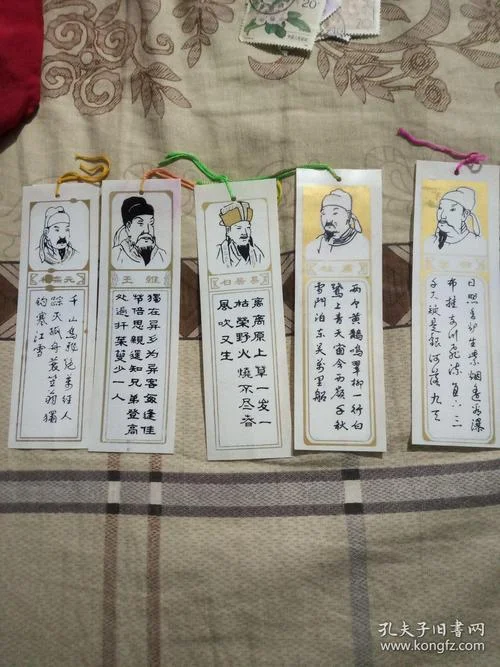 20
20
柳宗元
千山鸟飛绝萬径人
踪灭孤舟蓑笠翁獨
钓寒江雪
王維
獨在异乡为异客每逢佳
節倍思親遥知兄弟登高
处遍插茱萸少一人
白居易
离离原上草一岁一
枯榮野火燒不尽春
風吹又生
杜甫
两个黄鹂鳴翠柳一行白
鹭上青天窗含西岭千秋
雪門泊东吴萬里船
日照香炉生紫烟遥看瀑
布挂前川飛流直下三
千尺疑是银河落九天
孔夫子旧书网
www.kongfz.com